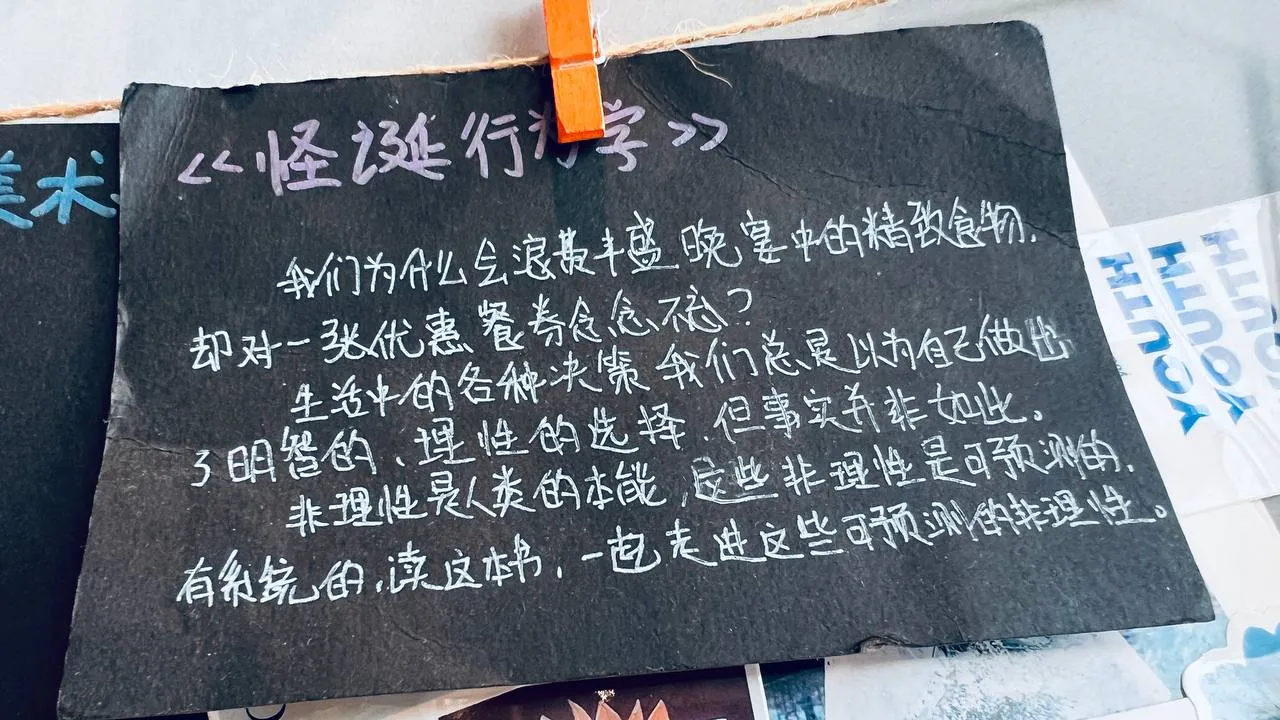 <<怪诞行为学>>
我们为什么会浪费丰盛晚宴中的精致食物,
却对一张优惠餐券念念不忘?
生活中的各种决策我们总是以为自己做出
了明智的、理性的选择,但事实并非如此。
非理性是人类的本能,这些非理性是可预测的,
有系统的,读这本书,一起走进这些可预测的非理性。
美术
YOUTH
YOUTH
YOUTH